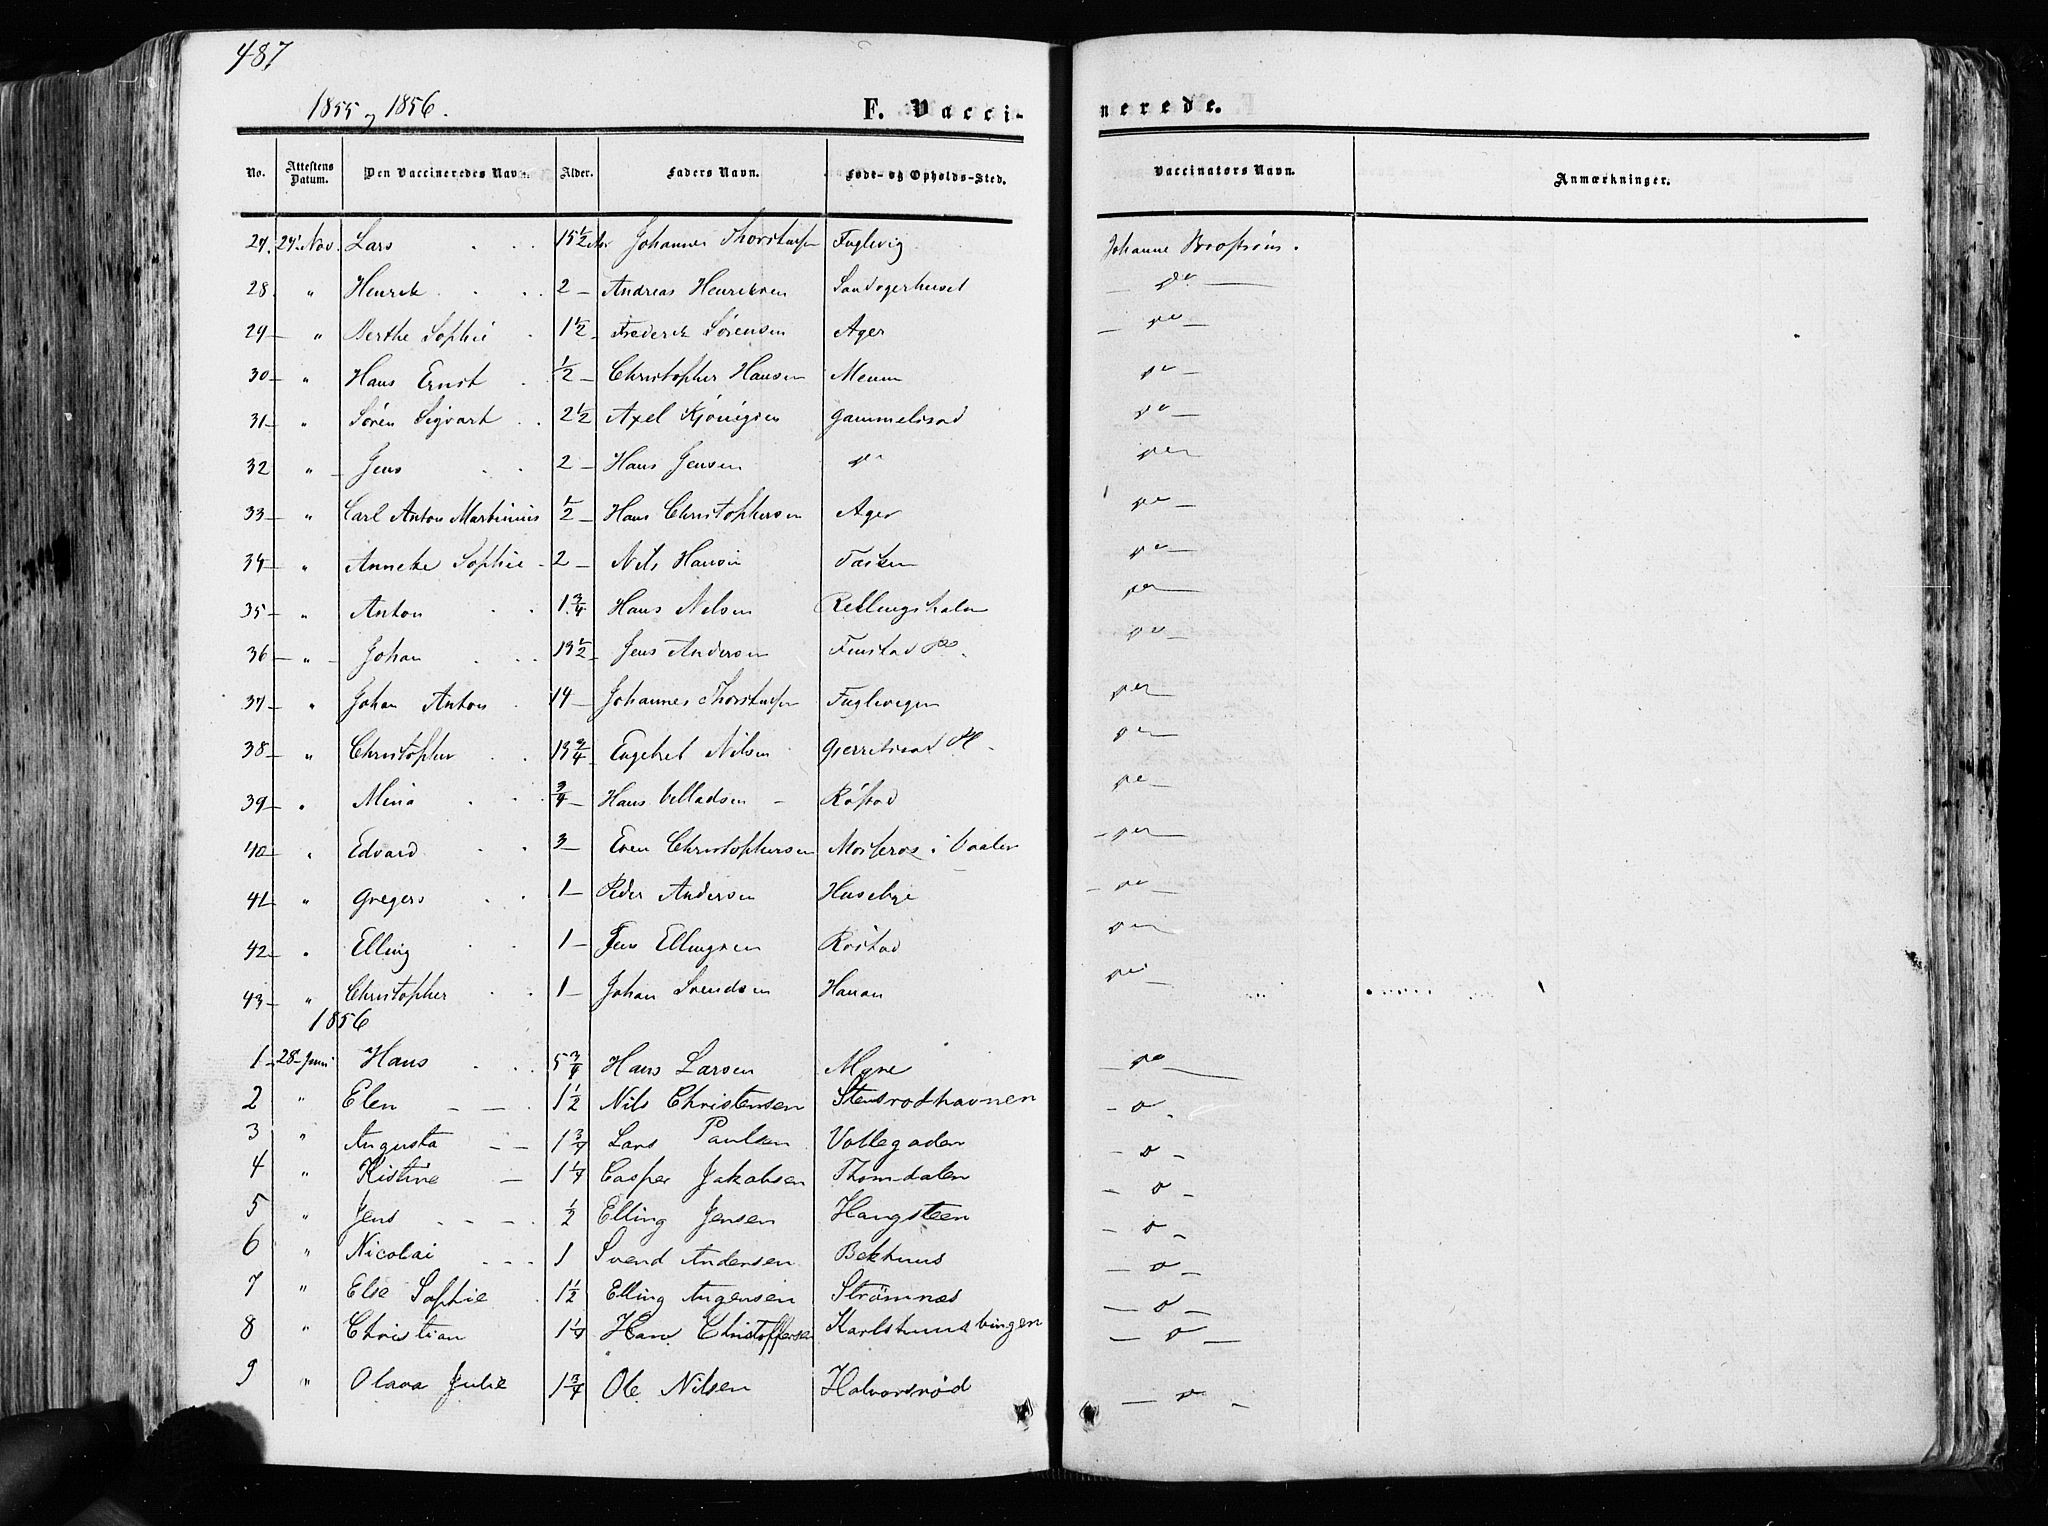 487
1855 og 1856.
F. Vacci-
nerede.
No. Attestens Datum. Den Vaccineredes Navn. Alder. Faders Navn. Føde- og Opholds-Sted. Vaccinators Navn. Anmærkninger.
27. 24' Nov. Lars 15 1/2 Aar Johannes Fuglevig Johanne
28. " Henrik 2 — Andreas Henriksen do
29 — " Berthe Sophie 1 1/2 Frederik Sørensen Ager — do —
30 — " Hans Ernst 1/2 — Christopher Hansen do —
31 — " Søren Sigvart 2 1/2 Axel do —
32 " — Jens 2 — Hans Jensen do do
33 — " Carl Anton Martinius 1/2 — Hans Christophersen Ager do —
34 — " Anneke Sophie 2 — Nils Hansen do —
35 — " Anton 1 3/4 Hans Nilsen do
36 — " — Johan 13 1/2 Jens Andersen do —
37 — " Johan Anton 14 Johannes Fuglevigen do
38 — " Christopher 13 3/4 Engebret Nilsen do
39 — " Mina 3/4 — Hans Røstad do —
40 — " Edvard 3 — Even Christophersen i Vaaler — do
41 — " Gregers 1 — Peder Andersen Husebye — do —
42 — " Elling 1 — Jens Ellingsen Røstad do
43 — " Christopher 1 — Johan Svendsen Hanan do —
1856
1 — 28 Juni Hans 5 3/4 Hans Larsen Myre — do
2 " Elen 1 1/2 Nils Christensen Stensrodhavnen — o —
3 " Augusta 1 3/4 Lars Paulsen Vollegaden — o —
4 " Kistine 1 1/4 Casper Jakobsen Thomdalen — o —
5 " Jens 1/2 Elling Jensen Haugsteen — o —
6 " Nicolai 1 Svend Andersen Bekhuus — o —
7 " Else Sophie 1 1/2 Elling Augensen Strømnæs — o —
8 " Christian 1 1/4 Hans Christoffersen Karlshuusbingen — o —
9 " Olava Julie 1 3/4 Ole Nilsen Halvorsrød — o —